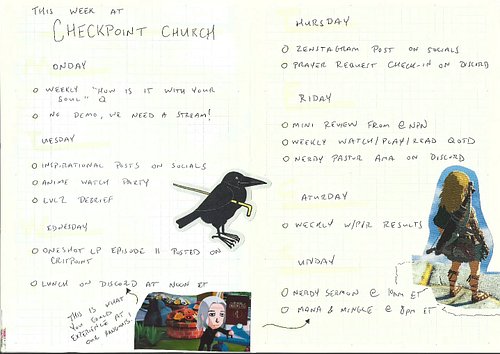 THIS WEEK AT
CHECKPOINT CHURCH
ONDAY
O WEEKLY "HOW IS IT WITH YOUR
SOUL" Q
O NG DEMO, WE NEED A STREAM!
UESDAY
O INSPIRATIONAL POSTS ON SOCIALS
O ANIME WATCH PARTY
O LVL2 DEBRIEF
EDNESDAY
O ONESHOT LP EPISODE 11 POSTED ON
CRITPOINT
O LUNCH ON DISCORD AT NOON ET
THIS IS WHAT
YOU COULD
EXPERIENCE AT
OUR
HURSDAY
O ZENSTAGRAM POST ON SOCIALS
O PRAYER REQUEST CHECK-IN ON DISCORD
RIDAY
O MINI REVIEW FROM @NPN
O WEEKLY WATCH/PLAY/READ QOTD
O NERDY PASTOR AMA ON DISCORD
ATURDAY
O WEEKLY W/P/R RESULTS
UNDAY
O NERDY SERMON @ ET
O MANA & MINGLE @ 8PM ET